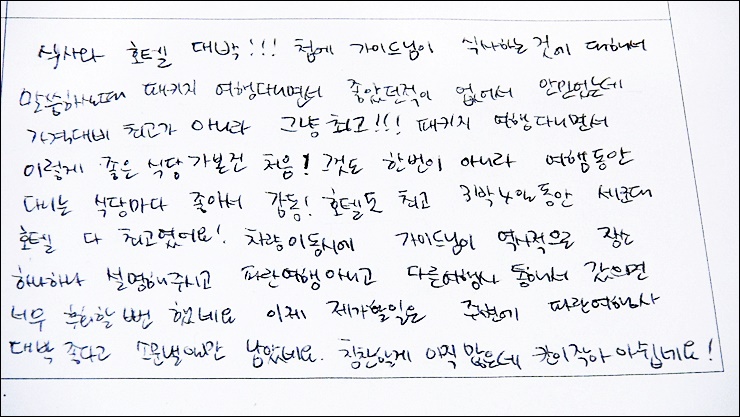 식사와 호텔 대박!!! 첨에 가이드님이 식사하는것에 대해서
말씀하실때 패키지 여행다니면서 좋았던적이 없어서 안믿었는데
가격대비 최고가 아니라 그냥 최고!!! 패키지 여행다니면서
이렇게 좋은 식당 가본건 처음! 그것도 한번이 아니라 여행동안
다니는 식당마다 좋아서 감동! 호텔도 최고 3박4일동안
호텔 다 최고였어요! 차량이동시에 가이드님이 역사적으로 장소
하나하나 설명해주시고 파란여행아니고 다른여행사 통해서 갔으면
너무 후회할 뻔 했네요 이제 제가할일은 주변에 파란여행사
대박 좋다고 소문낼일만 남았네요. 칭찬할게 아직 많은데 칸이작아 아쉽네요!